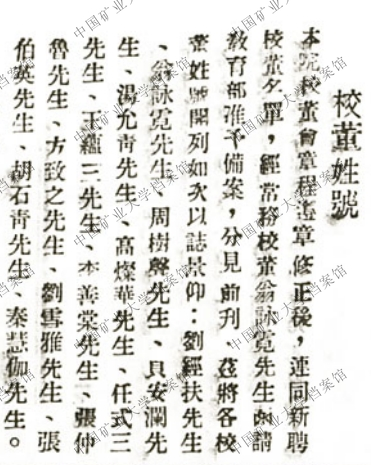 校董姓號
本院校董會章程遵章修正後，連同新聘
校董名單，經常務校董翁詠霓先生函請
教育部准予備案，分見前刊　茲將各校
董姓號開列如次以誌景仰：劉經扶先生
、翁詠霓先生、周樹聲先生、貝安瀾先
生、湯允青先生、高燦華先生、任式三
先生、王蘊三先生、李善棠先生、張仲
魯先生、方致之先生、劉雪雅先生、張
伯英先生、胡石青先生、秦慧伽先生。
中国矿业大学档案馆